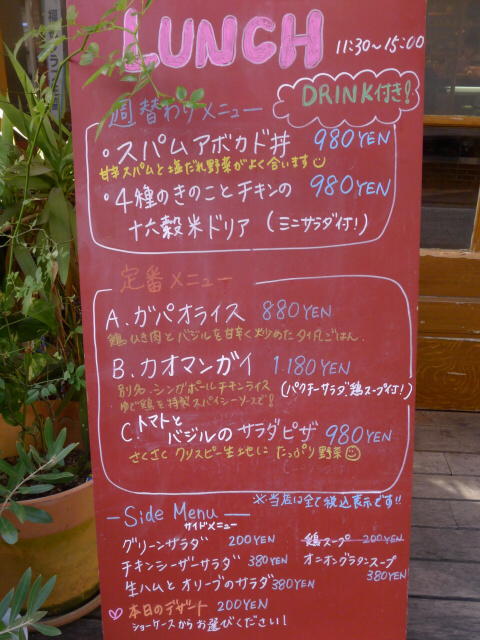 LUNCH
11:30~15:00
DRINK付き!
週替わりメニュー
・スパムアボカド丼 980YEN
甘辛スパムと塩だれ野菜がよく合います
・4種のきのことチキンの 980YEN
十六穀米ドリア (ミニサラダ付!)
定番メニュー
A. ガパオライス 880YEN
鶏ひき肉とバジルを甘辛く炒めたタイ風ごはん.
B. カオマンガイ 1.180YEN
別名.シンガポールチキンライス
ゆで鶏を特製スパイシーソースで!
(パクチーサラダ,鶏スープ付!)
C. トマトと
バジルのサラダピザ 980YEN
さくさくクリスピー生地にたっぷり野菜
※当店は全て税込表示です!!
Side Menu
サイドメニュー
グリーンサラダ 200YEN
鶏スープ 200YEN
チキンシーザーサラダ 380YEN
オニオングラタンスープ
380YEN
生ハムとオリーブのサラダ 380YEN
本日のデザート 200YEN
ショーケースからお選びください!